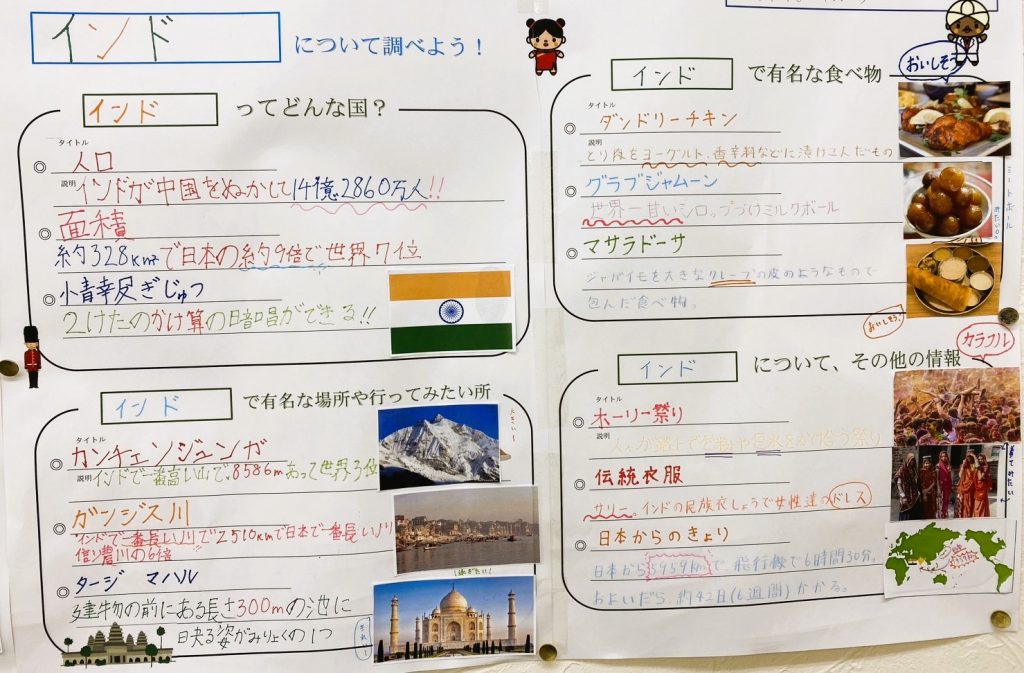 インド について調べよう！
インド ってどんな国？
タイトル
人口
説明
インドが中国をぬかして14億2860万人!!
面積
約328km²で日本の約9倍で世界7位
小青幸皮ぎじゅつ
2けたのかけ算の日音唱ができる!!
インド で有名な場所や行ってみたい所
タイトル
カンチェンジュンガ
説明
インドで一番高い山で、8586mあって世界3位
大きい！
ガンジス川
インドで一番長い川で2510kmで日本で一番長い川より
信濃川の6倍
泳ぎたい！
タージ マハル
建物の前にある長さ300mの池に
映る姿がみりょくの1つ
きれー！
インド で有名な食べ物
おいしそう
タイトル
ダンドリーチキン
説明
とり肉をヨーグルト、香辛料などに漬けこんだもの
グラブジャムーン
世界一甘いシロップづけミルクボール
ミートボール
みたい
マサラドーサ
ジャガイモを大きなクレープの皮のようなもので
包んだ食べ物。
おいしそう!
インド について、その他の情報
カラフル
タイトル
ホーリー祭り
説明
人々が路上で色粉や色水をかけ合う祭り
伝統衣服
サリー。インドの民族衣しょうで女性達のドレス
着てみたい
日本からのきょり
日本から5959kmで、飛行機で6時間30分。
およいだら、約42日(6週間)かかる。